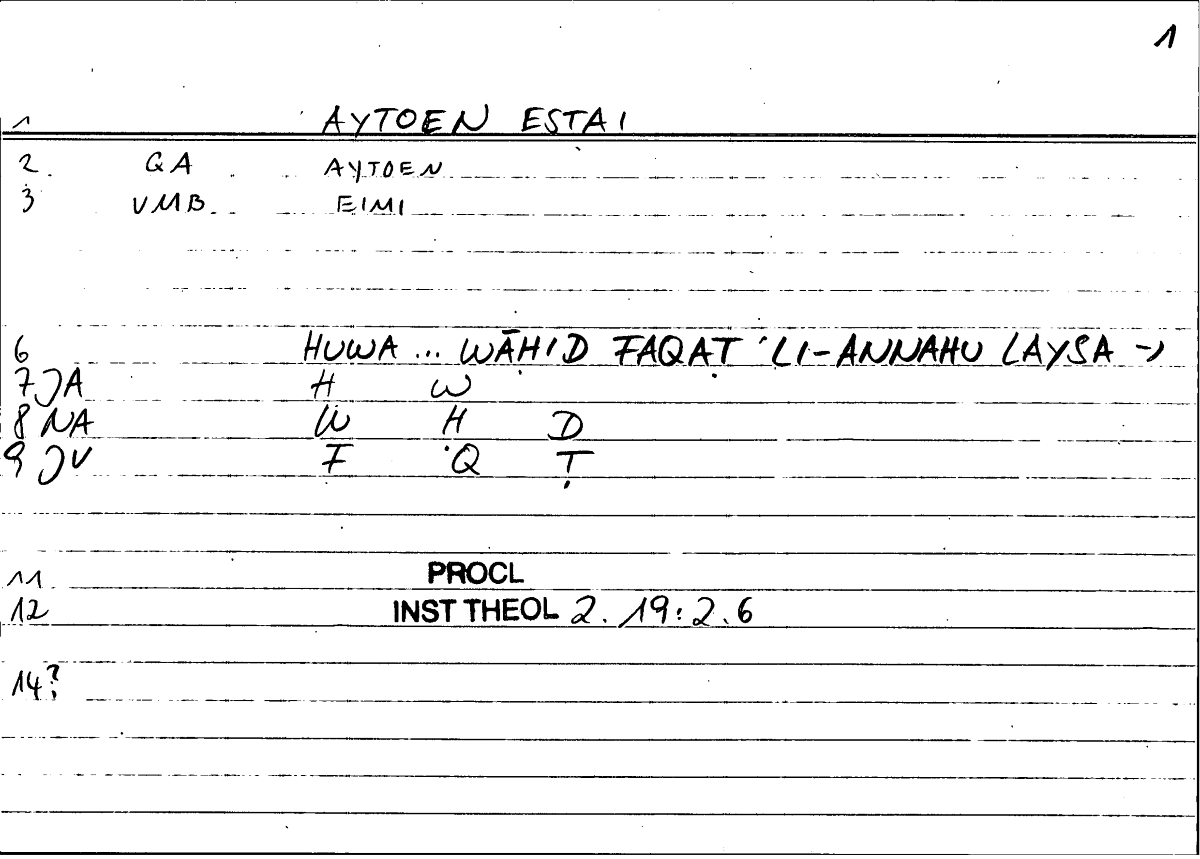 1
1 AYTOEN ESTAI
2. QA AYTOEN
3 VMB EIMI
6 HUWA ... WĀḤID FAQAṬ LI-ANNAHU LAYSA →
7 JA H W
8 NA W Ḥ D
9 JV F Q Ṭ
11 PROCL
12 INST THEOL 2. 19: 2.6
14?